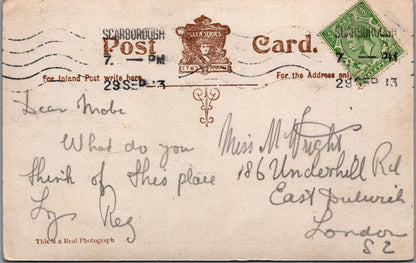 SCARBOROUGH
7. — PM
29 SEP 13
SCARBOROUGH
7. — PM
29 SEP 13
Post Card.
QUEEN SERIES
For Inland Post write here
For the Address only
Dear Mabe
What do you
think of this place
Reg
Miss M Wright
186 Underhill Rd
East Dulwich
London
S E
This is a Real Photograph